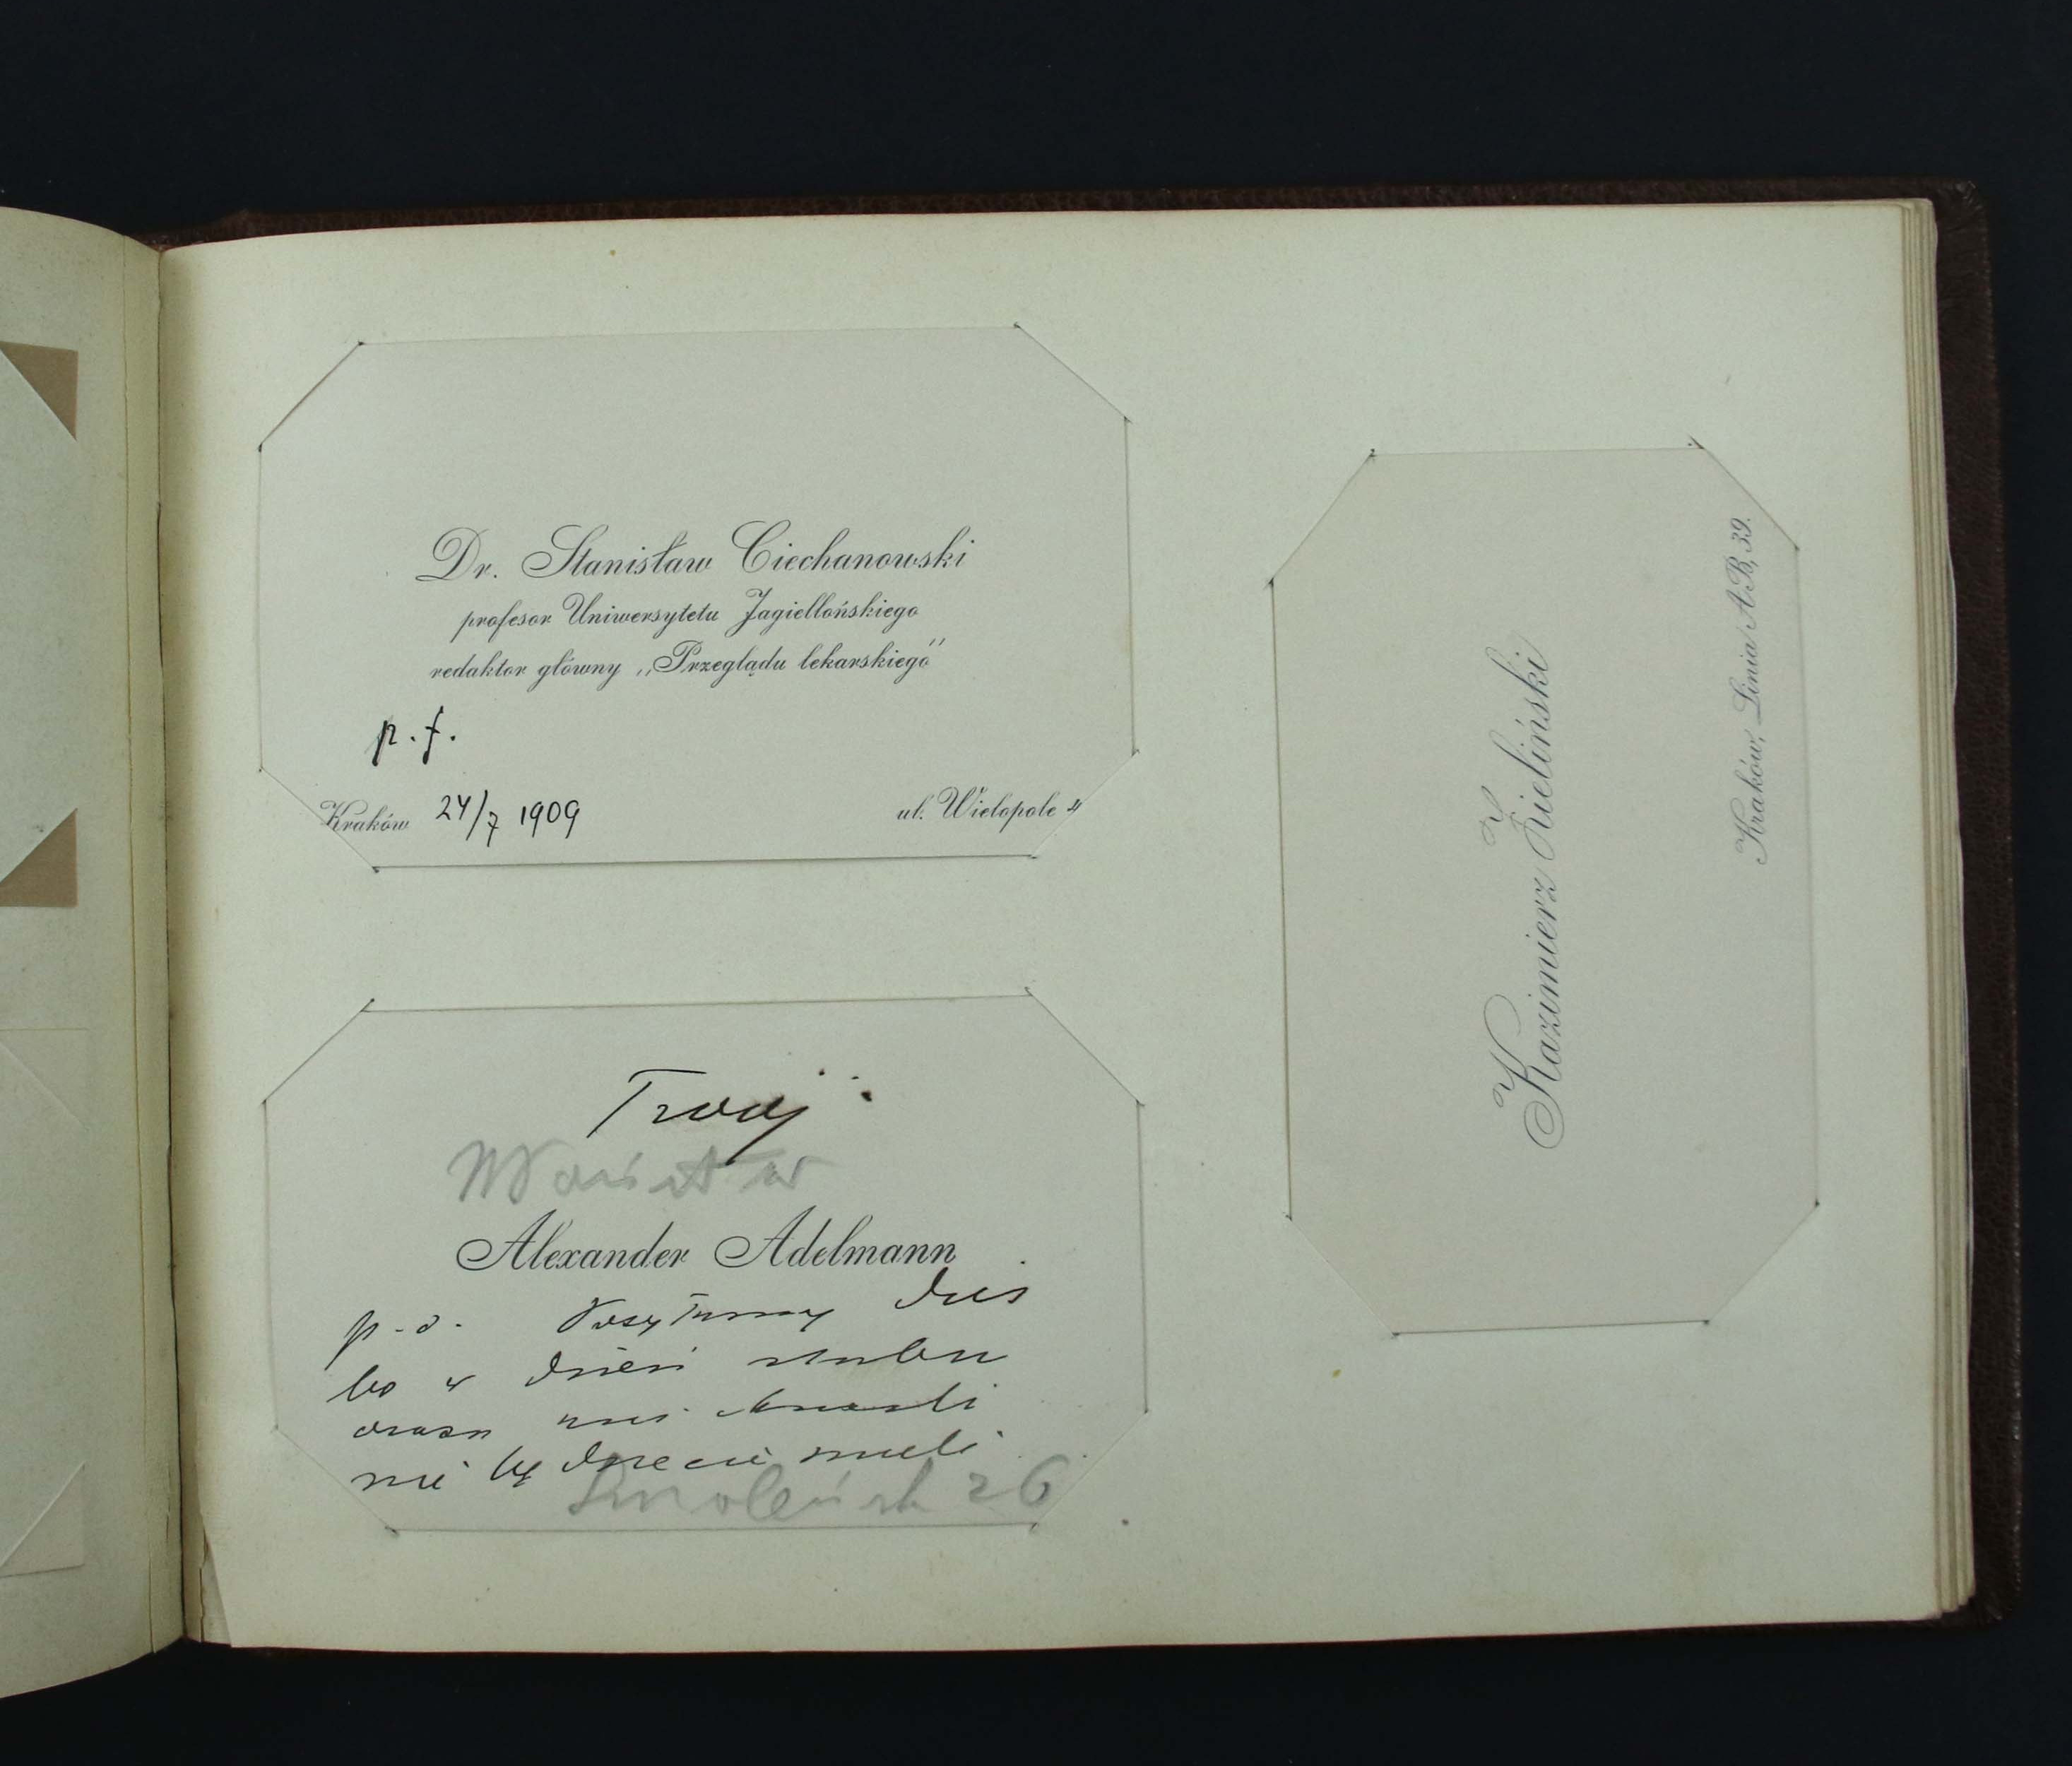 Dr. Stanisław Ciechanowski
profesor Uniwersytetu Jagiellońskiego
redaktor główny „Przeglądu lekarskiego"
p. f.
Kraków 24/7 1909 ul. Wielopole 4
Twój
Alexander Adelmann
p. s. dziś
bo w dzień ślubu
nie będziecie mieli
Smoleńsk 26
Kazimierz Zieliński
Kraków, Linia A-B, 39.